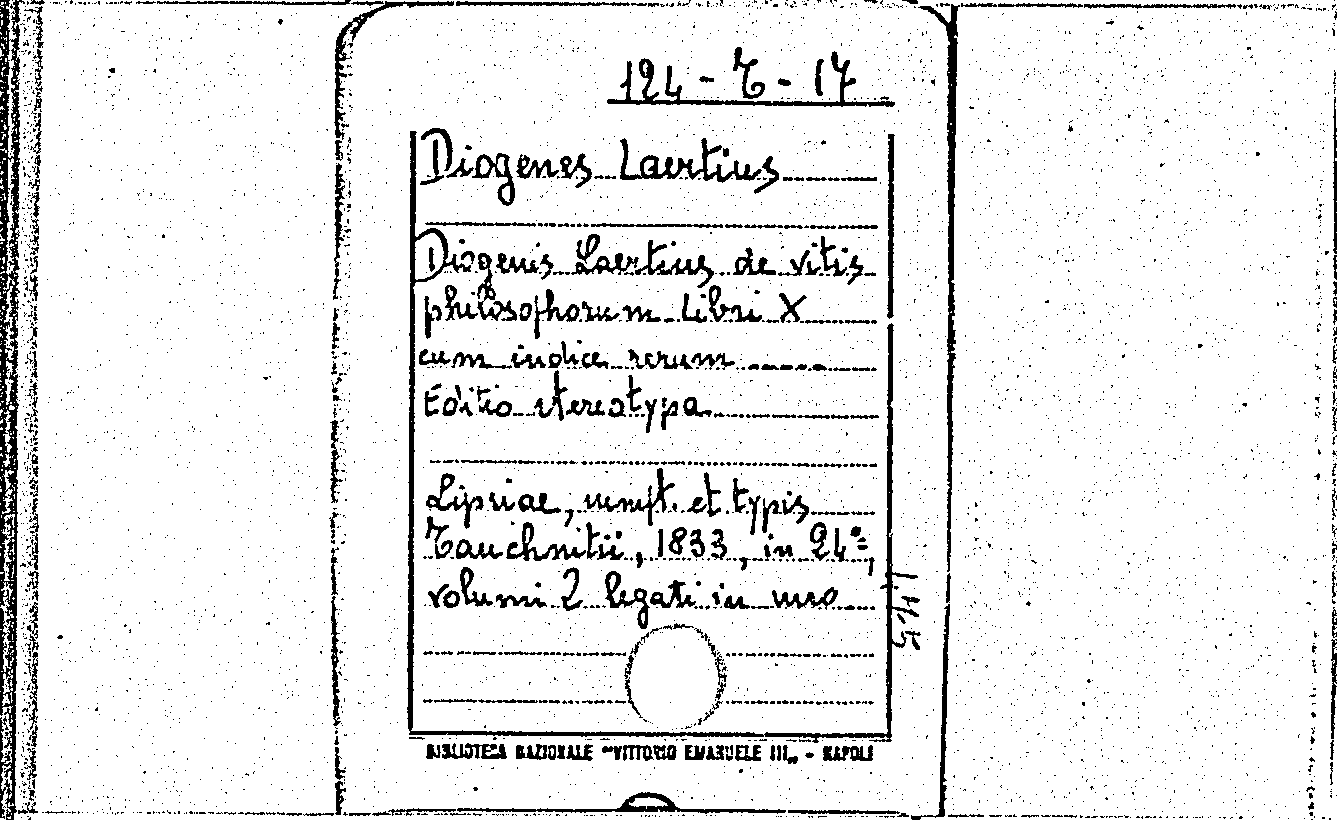 124 - T - 17
Diogenes Laertius
Diogenis Laertius de vitis
philosophorum libri X
cum indice rerum ......
Editio stereotypa
Lipsiae, sumpt. et typis
Tauchnitii, 1833, in 24°,
volumi 2 legati in uno
BIBLIOTECA NAZIONALE "VITTORIO EMANUELE III„ - NAPOLI